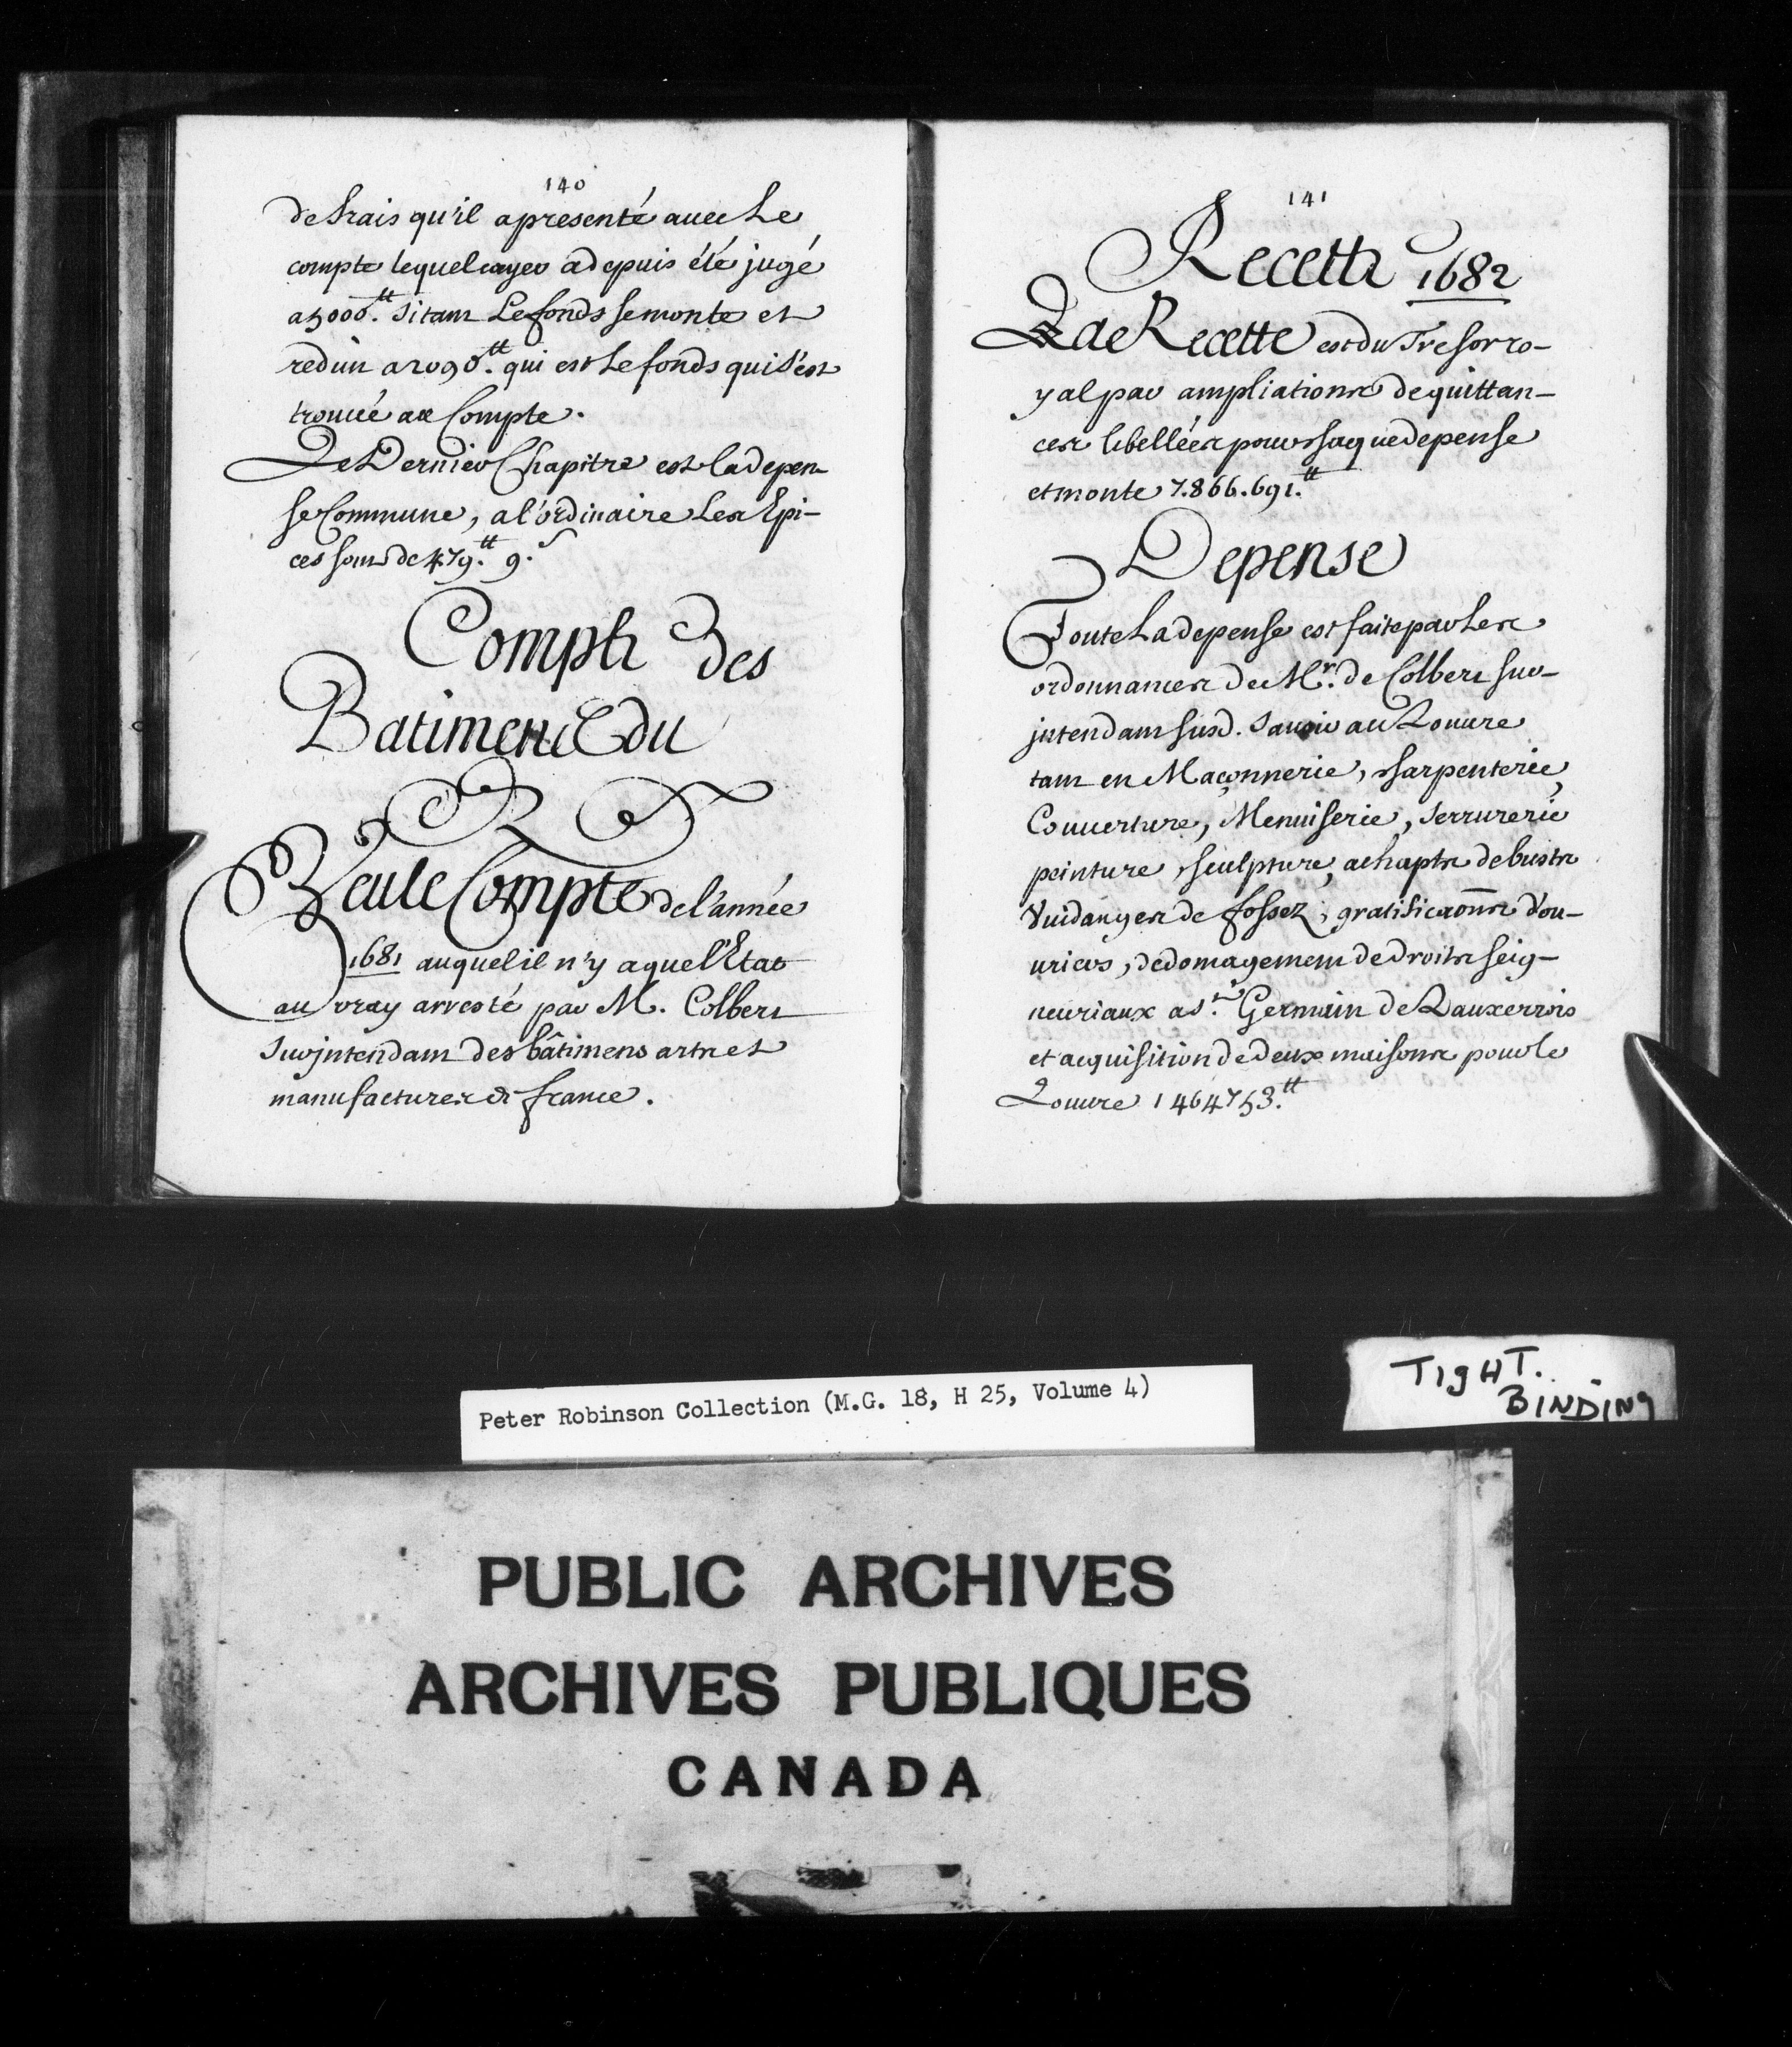 140
de frais qu'il a presenté avec Le
compte lequel cayer a depuis été jugé
a 5000.tt si tant Le fonds se monte et
reduit a 2090.tt qui est Le fonds qui s'est
trouvé au Compte.
Le Dernier Chapitre est la depen
se Commune, a l'ordinaire Les Epi-
ces sont de 479.tt 9.s
Compte des
Batimens du
R
Veu le Compte de l'année
1681 auquel il n'y a que l'Etat
au vray arresté par M. Colbert
Surjntendant des bâtimens arts et
manufactures de france.
141
Recette 1682
La Recette est du Tresor ro-
yal par ampliations de quittan-
ces libellées pour chaque depense
et monte 7.866.691.tt
Depense
Toute La depense est faite par Les
ordonnances de Mr. de Colbert sur-
jntendant susd. savoir au Louvre
tant en Maçonnerie, charpenterie,
Couverture, Menuiserie, serrurerie
peinture, sculpture, achapts de bustes
Vuidanges de fossez, gratificaōns d'ou-
vriers, dedomagement de droits seig-
neuriaux a St. Germain de Lauxerrois
et acquisition de deux maisons pour le
Louvre 1464753.tt
TIGHT.
BINDING
Peter Robinson Collection (M.G. 18, H 25, Volume 4)
PUBLIC ARCHIVES
ARCHIVES PUBLIQUES
CANADA